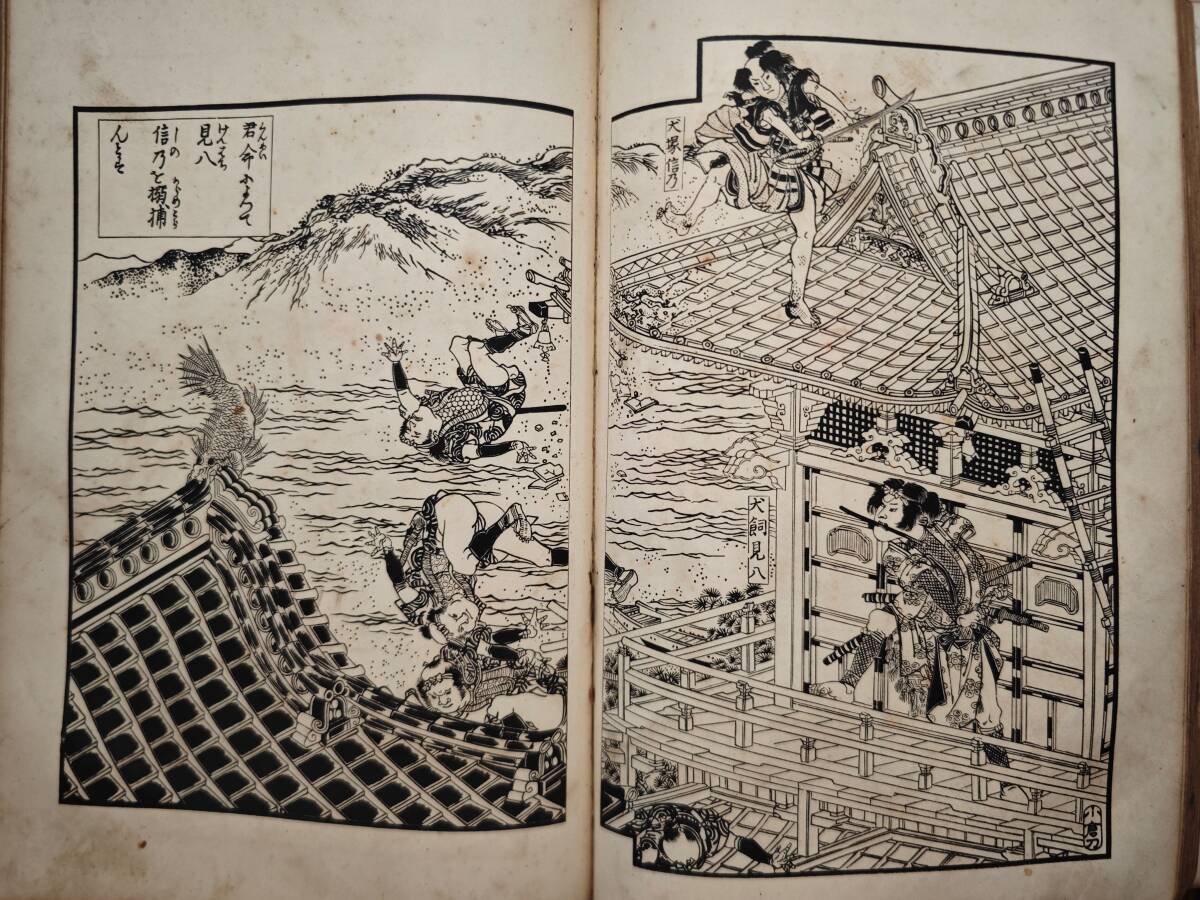 犬塚信乃
犬飼見八
小倉刀
君命によつて
見八
信乃を搦捕
んとす